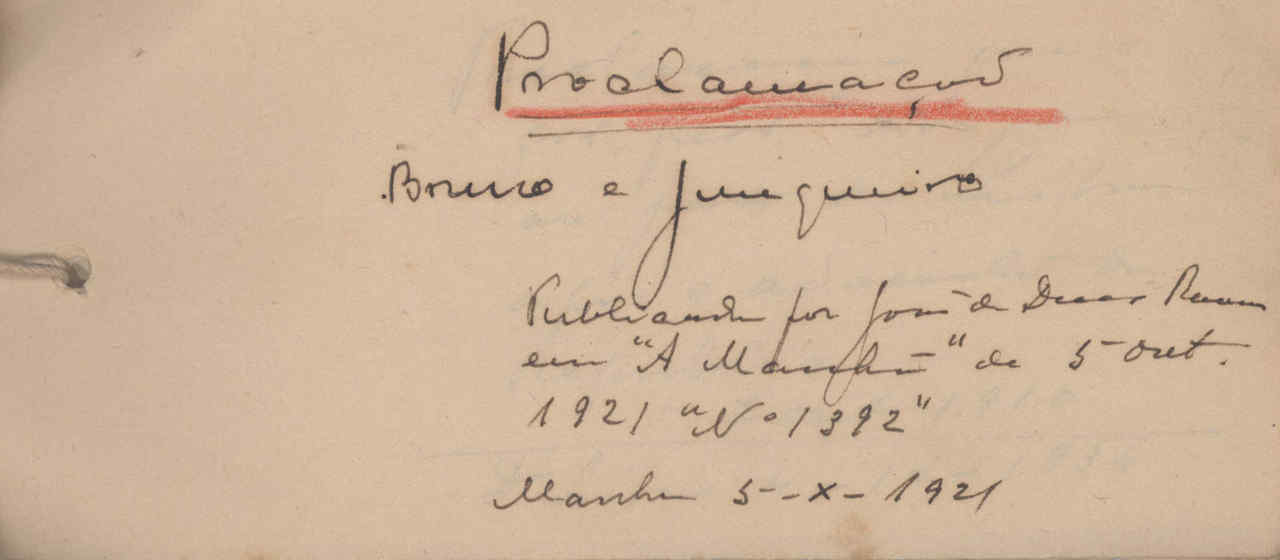 Proclamação
Bruno e Junqueiro
Publicada por João de Deus Ramos
em "A Manhã" de 5 Out.
1921 "Nº 1392"
Manhã 5-X-1921